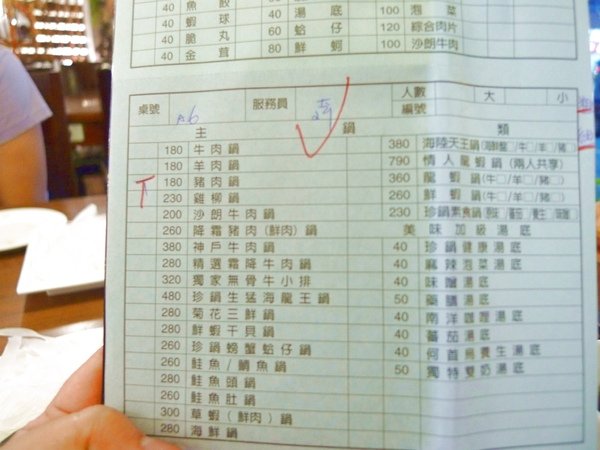 40 魚餃 40 湯底 100 泡菜
40 蝦球 60 蛤仔 120 綜合肉片
40 脆丸 80 鮮蚵 100 沙朗牛肉
40 金茸
桌號 A6 服務員 人數 大 小
編號
主 鍋 類
180 牛肉鍋
180 羊肉鍋
180 豬肉鍋
230 雞柳鍋
200 沙朗牛肉鍋
260 降霜豬肉(鮮肉)鍋
380 神戶牛肉鍋
280 精選霜降牛肉鍋
320 獨家無骨牛小排
480 珍鍋生猛海龍王鍋
280 菊花三鮮鍋
280 鮮蝦干貝鍋
260 珍鍋螃蟹蛤仔鍋
260 鮭魚/鯛魚鍋
280 鮭魚頭鍋
260 鮭魚肚鍋
300 草蝦(鮮肉)鍋
280 海鮮鍋
380 海陸天王鍋(海鮮盤□/牛□/羊□/豬□)
790 情人龍蝦鍋(兩人共享)
360 龍蝦鍋(牛□/羊□/豬□)
260 鮮蝦鍋(牛□/羊□/豬□)
230 珍鍋素食鍋
美味加級湯底
40 珍鍋健康湯底
40 麻辣泡菜湯底
40 味噌湯底
50 藥膳湯底
40 南洋咖哩湯底
40 蕃茄湯底
40 何首烏養生湯底
50 獨特雙奶湯底